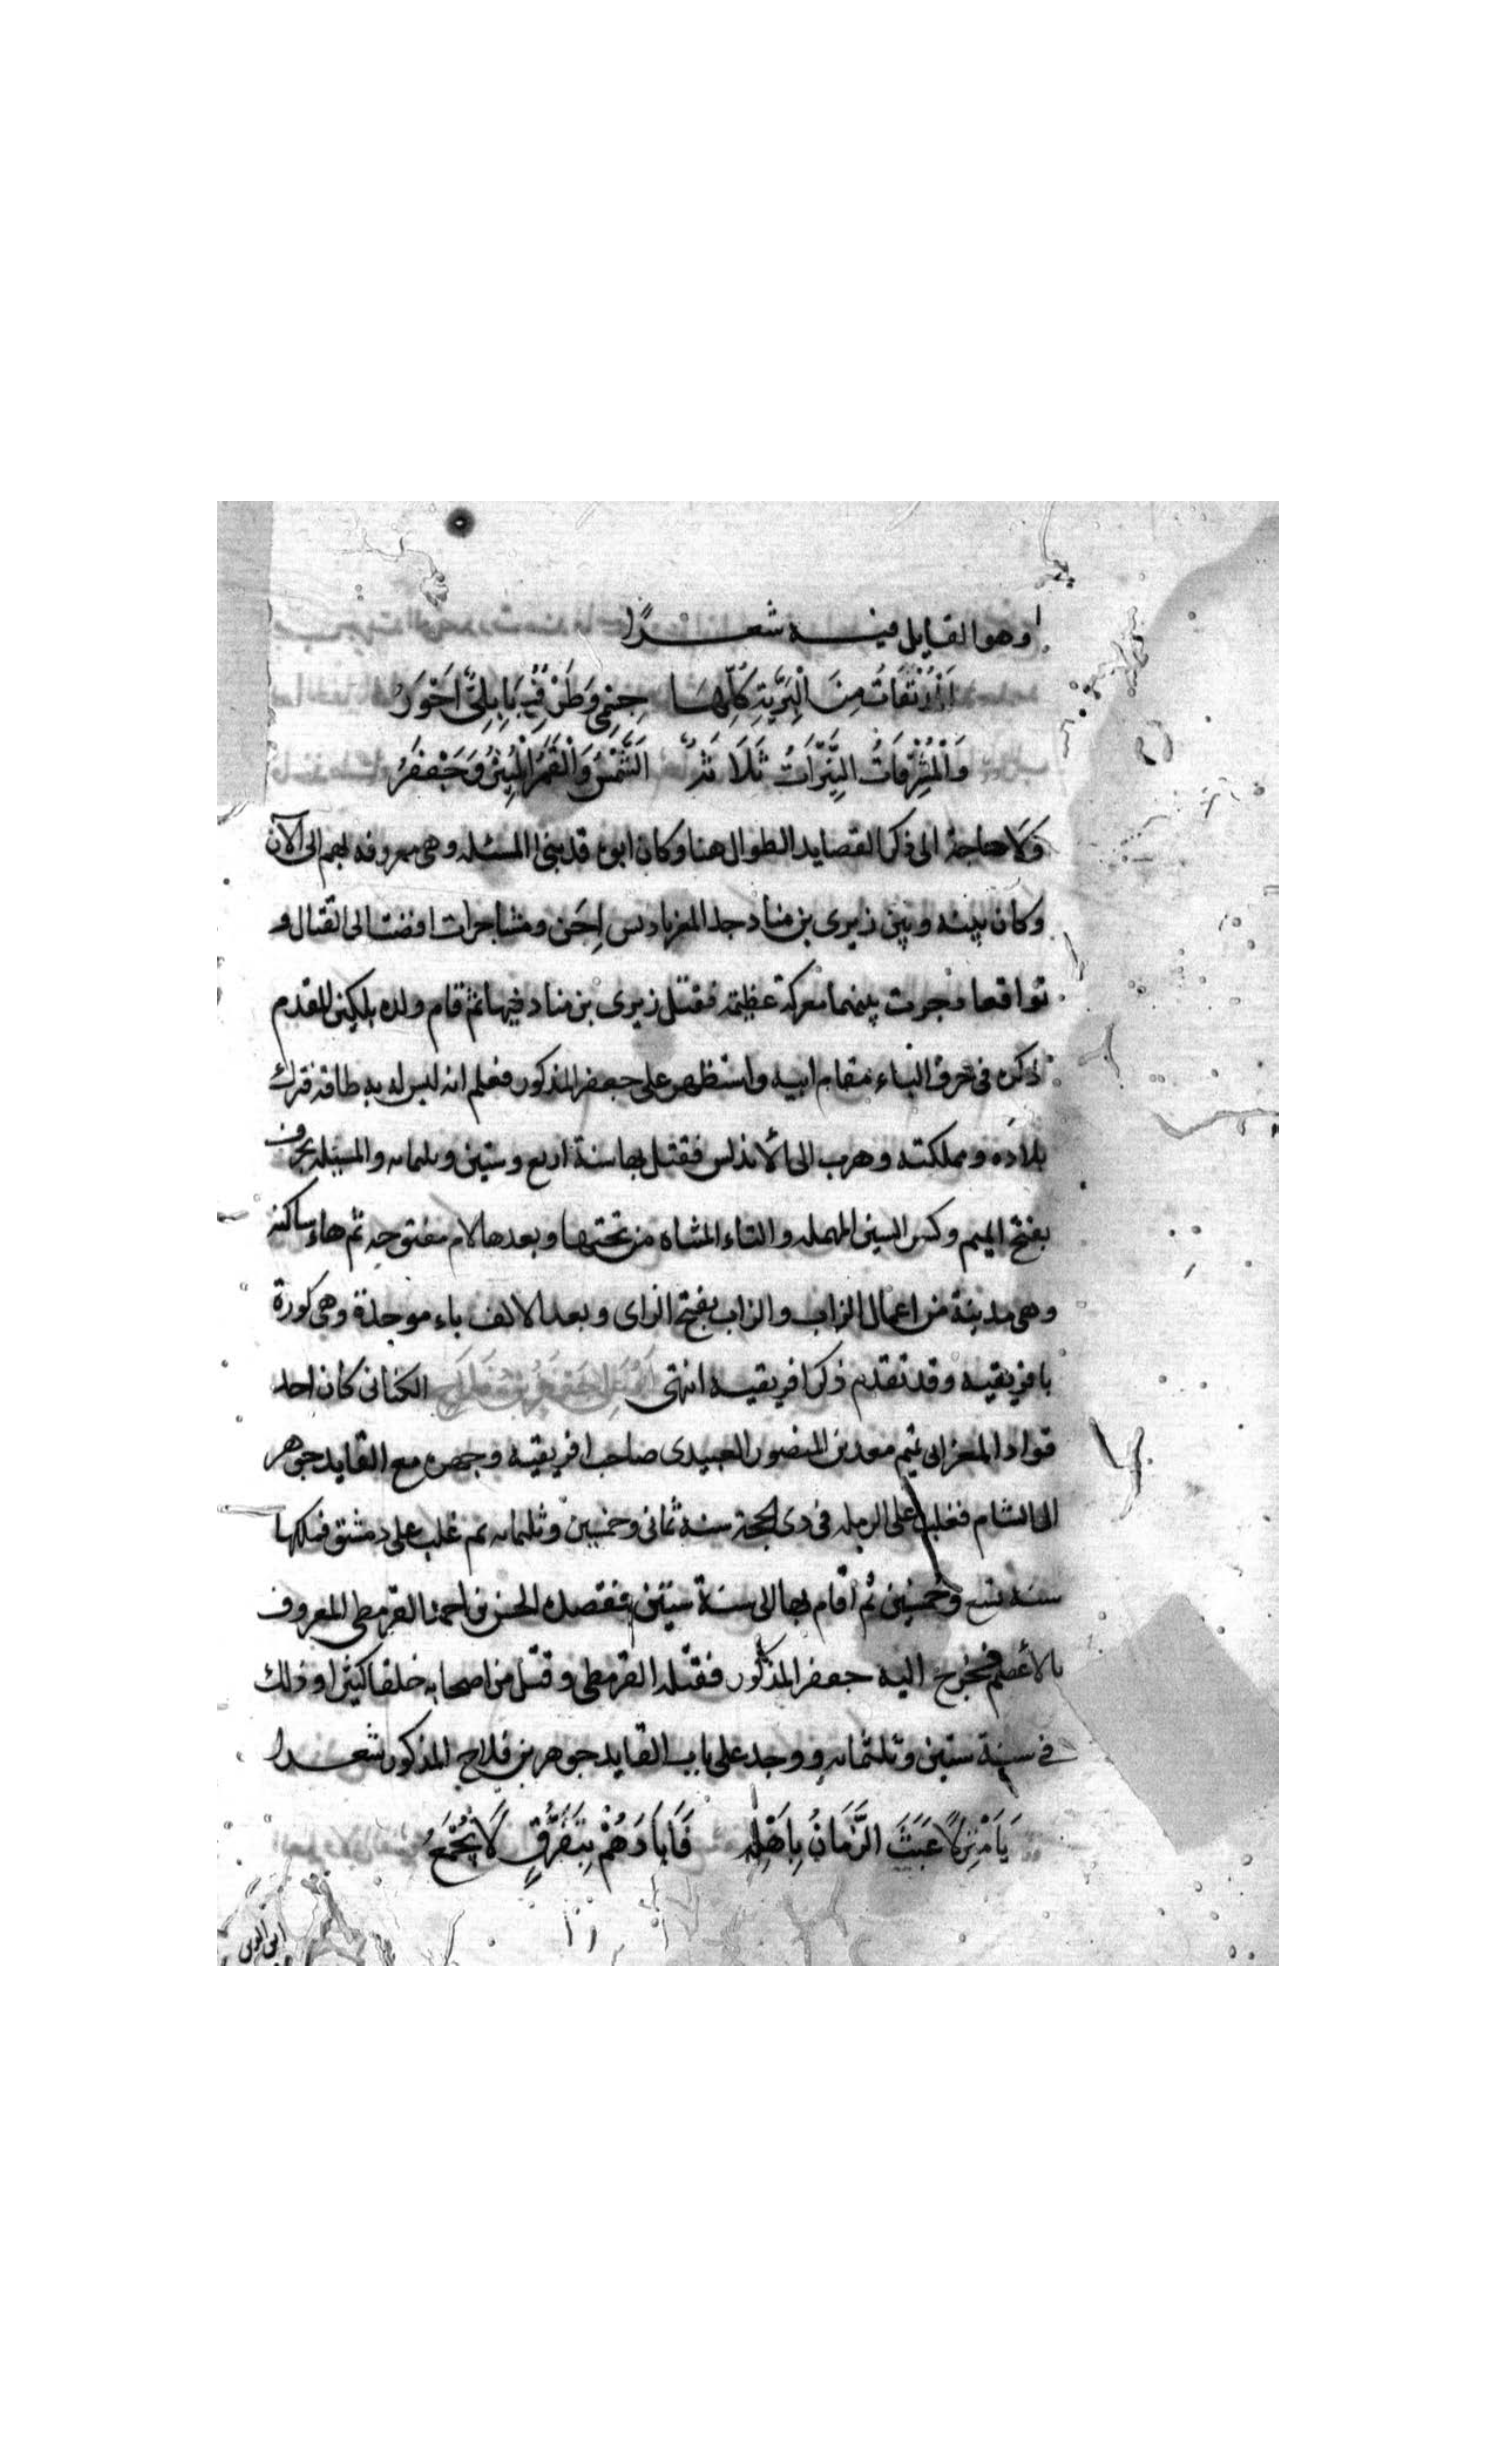 وهو القايل فيه شعرًا
اَلْمُدْنَفَاتُ مِنَ الْبَرِيَّةِ كُلِّهَا جِسْمِى وَطَرْفٌ بَابِلِىٌّ اَحْوَرُ
وَالْمُشْرِقَاتُ النَّيِّرَاتُ ثَلَاثَةٌ اَلشَّمْسُ وَالْقَمَرُ الْمُنِيرُ وَجَعْفَرُ
وَلَا حاجة الى ذكر القصايد الطوال هنا وكان ابوه قد بنى المسئله وهى معروفه بهم الى الآن
وكان بينه وبين زيرى بن مناد جد المعز باديس اِحَن ومشاجرات افضت الى القتال و
تواقعا وجرت بينهما معركة عظيمة فقتل زيرى بن مناد فيها ثم قام ولده بلكين المقدم
ذكره فى حرف الباء مقام ابيه واستظهر على جعفر المذكور فعلم انه ليس له به طاقة فترك
بلاده ومملكته وهرب الى الأندلس فقتل بها سنة اربع وستين وثلثمايه والمسيله بحرف
بفتح الميم وكسر السين المهمله والتاء المثناه من تحتها وبعدها لام مفتوحه ثم هاء ساكنه
وهى مدينة من اعمال الزاب والزاب بفتح الزاى وبعد الالف باء موحدة وهى كورة
بافريقيه وقد تقدم ذكر افريقيه انتهى جَعْفَرُ بْنُ فَلَاحِ الكتانى كان احد
قواد المعز ابى تميم معد بن المنصور العبيدى صاحب افريقيه وجهزه مع القايد جوهر
الى الشام فغلب على الرمله فى ذى الحجة سنة ثمانى وخمسين وثلثمايه ثم غلب على دمشق فملكها
سنة تسع وخمسين ثم اقام بها الى سنة ستين فقصده الحسن بن احمد القرمطى المعروف
بالأعصم فخرج اليه جعفر المذكور فقتله القرمطى وقتل من اصحابه خلقا كثيرا وذلك
فى سنة ستين وثلثمايه ووجد على باب القايد جوهر بن فلاح المذكور شعرا
يَا مَنْزِلًا عَبَثَ الزَّمَانُ بِاَهْلِهِ فَاَبَادَهُمْ بِتَفَرُّقٍ لَا يُجْمَعُ